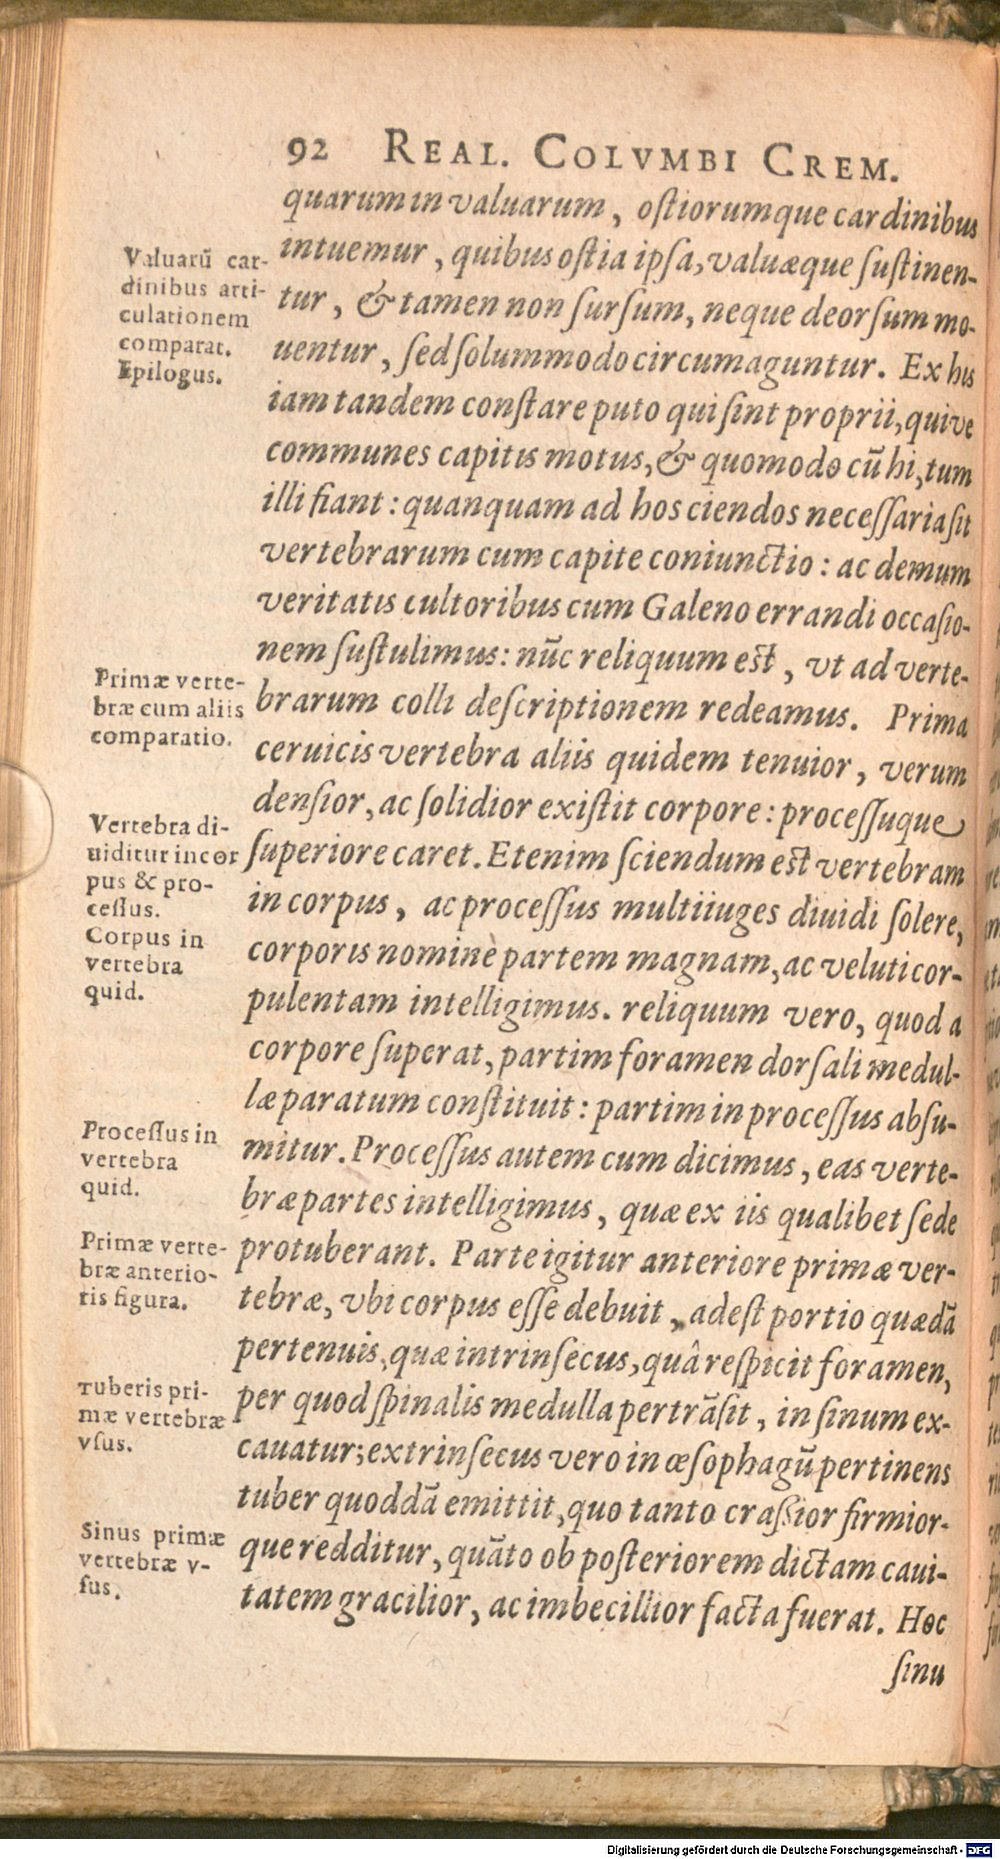 92 REAL. COLVMBI CREM.
quarum in valuarum, ostiorumque cardinibus
intuemur, quibus ostia ipsa, valuæque sustinen-
tur, & tamen non sursum, neque deorsum mo-
uentur, sed solummodo circumaguntur. Ex his
iam tandem constare puto qui sint proprii, quive
communes capitis motus, & quomodo cū hi, tum
illi fiant: quanquam ad hos ciendos necessaria sit
vertebrarum cum capite coniunctio: ac demum
veritatis cultoribus cum Galeno errandi occasio-
nem sustulimus: nūc reliquum est, vt ad verte-
brarum colli descriptionem redeamus. Prima
ceruicis vertebra aliis quidem tenuior, verum
densior, ac solidior existit corpore: processuque
superiore caret. Etenim sciendum est vertebram
in corpus, ac processus multiiuges diuidi solere,
corporis nomine partem magnam, ac veluti cor-
pulentam intelligimus. reliquum vero, quod a
corpore superat, partim foramen dorsali medul-
læ paratum constituit: partim in processus absu-
mitur. Processus autem cum dicimus, eas verte-
bræ partes intelligimus, quæ ex iis qualibet sede
protuberant. Parte igitur anteriore primæ ver-
tebræ, vbi corpus esse debuit, adest portio quædā
pertenuis, quæ intrinsecus, quâ respicit foramen,
per quod spinalis medulla pertrāsit, in sinum ex-
cauatur; extrinsecus vero in œsophagū pertinens
tuber quoddā emittit, quo tanto crassior firmior-
que redditur, quāto ob posteriorem dictam caui-
tatem gracilior, ac imbecillior facta fuerat. Hoc
sinu
Valuarū car-
dinibus arti-
culationem
comparat.
Epilogus.
Primæ verte-
bræ cum aliis
comparatio.
Vertebra di-
uiditur in cor
pus & pro-
cessus.
Corpus in
vertebra
quid.
Processus in
vertebra
quid.
Primæ verte-
bræ anterio-
ris figura.
Tuberis pri-
mæ vertebræ
vsus.
Sinus primæ
vertebræ v-
sus.
Digitalisierung gefördert durch die Deutsche Forschungsgemeinschaft - DFG